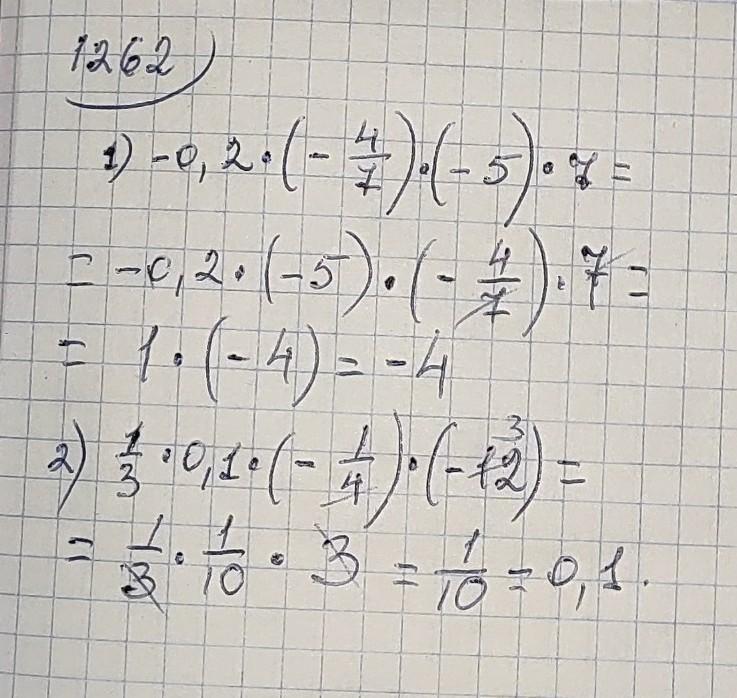 1262)
1) -0,2·(-4/7)·(-5)·7=
= -0,2·(-5)·(-4/7)·7=
= 1·(-4)=-4
2) 1/3·0,1·(-1/4)·(-12 3)=
= 1/3·1/10·3 = 1/10 = 0,1.